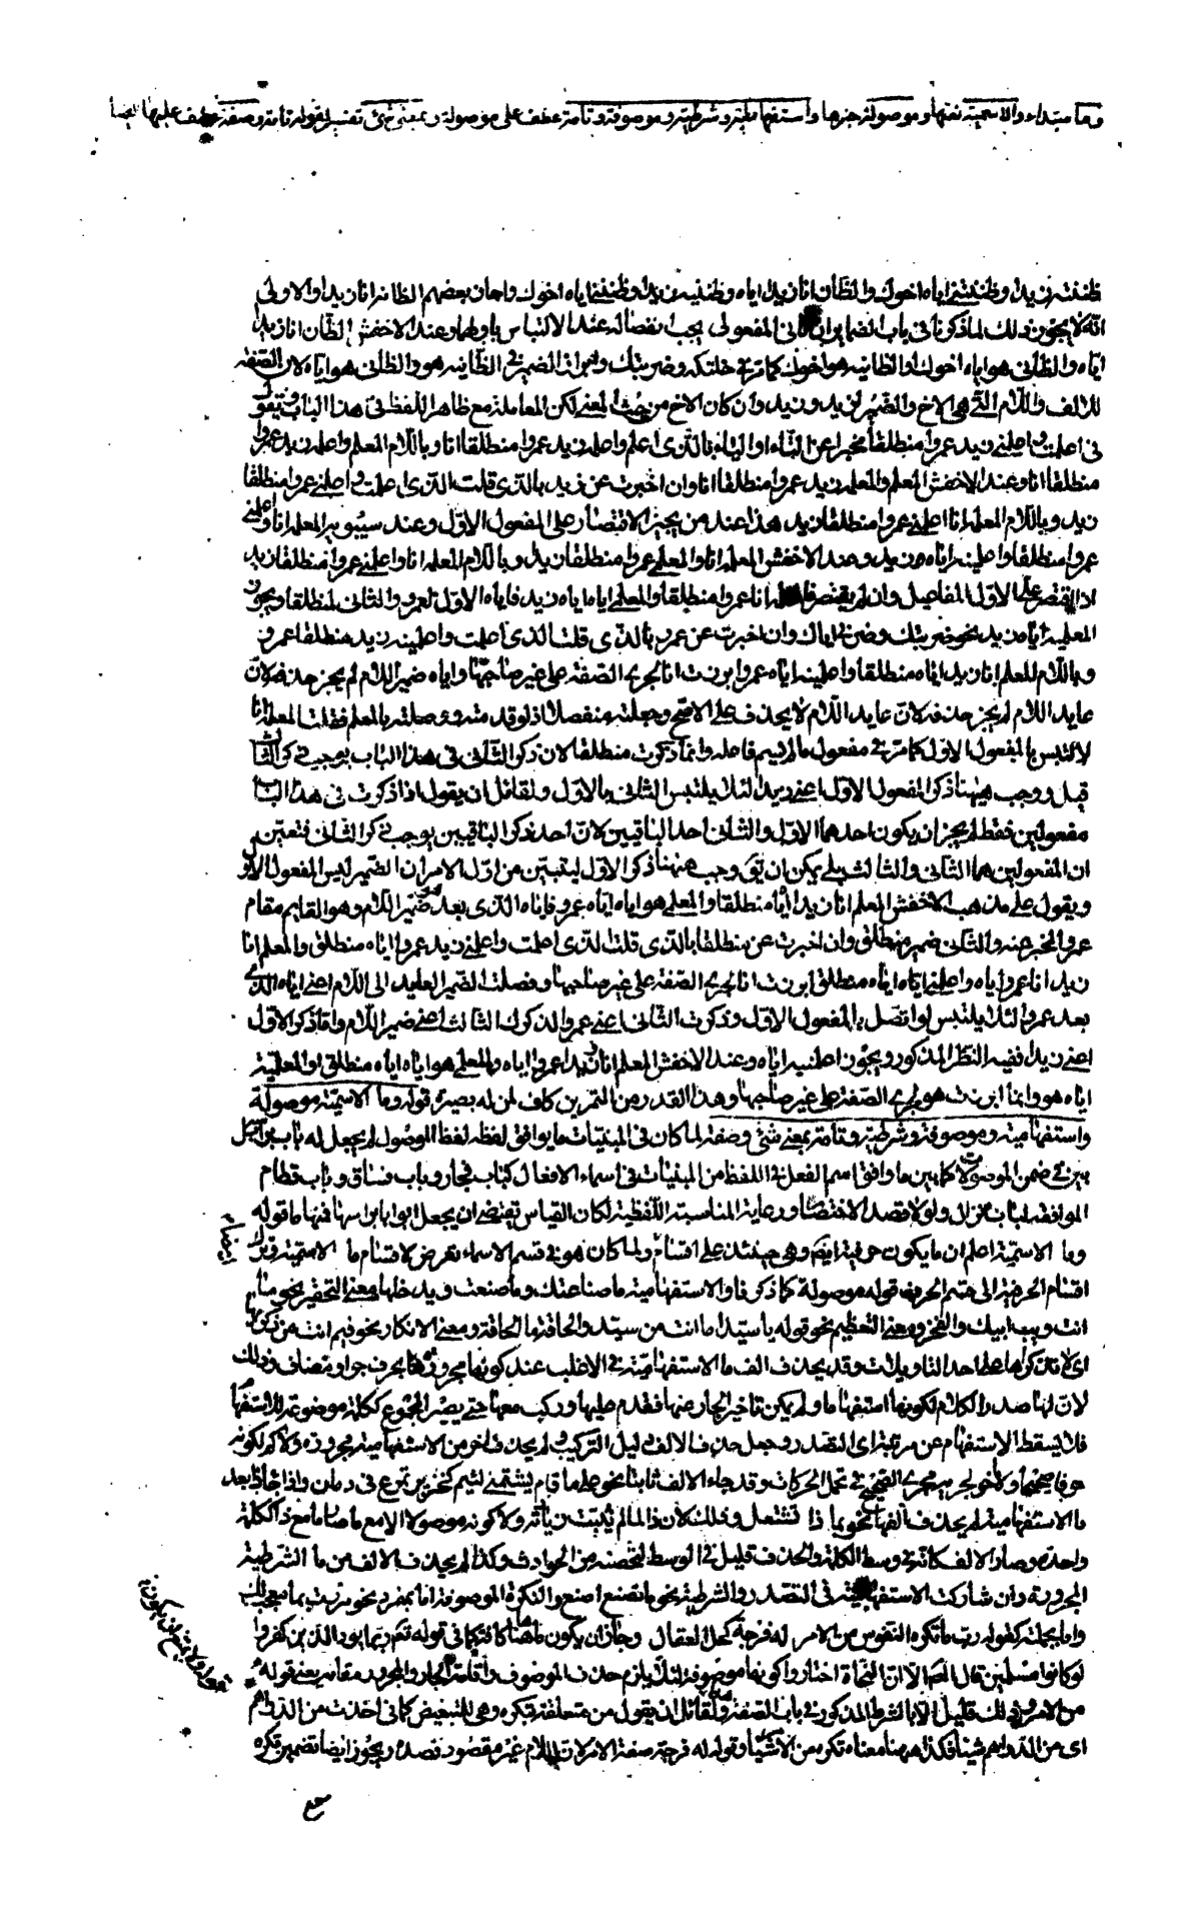 وما مبتداء والاسمية نعتها وموصولة خبرها واستفهامية وشرطية وموصوفة وتامة عطف على موصولة وبمعنى شئ تفسير لقوله تامة وصفة عطف عليها ايضا
ظننته زيدا وظننتنى اياه اخوك والظان انا زيدا اياه وظننيه زيدا وظننى اياه اخوك واجاز بعضهم الظانه انا زيدا والاولى
انه لا يجوز ذلك لما ذكرنا فى باب الضماير ان ثانى المفعولى يجب انفصاله عند الالتباس باولهما وعند الاخفش الظان انا زيدا
اياه والظانى هو اياه اخوك او الظانيه هو اخوك كما تر فى خلتكه وضربتك والضمير فى الظانيه هو والظانى هو اياه لان الصفة
للالف واللام التى هى الاخ والضمير لزيد وان كان الاخ من حيث المعنى لكن المعاملة مع ظاهر اللفظ فى هذا الباب وتقول
فى اعلمت واعلمنى زيد عمروا منطلقا مخبرا عن التاء او الياء بالذى اعلم واعلمه زيد عمروا منطلقا انا وباللام المعلم واعلمه زيد عمروا
منطلقا انا وعند الاخفش المعلم والمعلمه زيد عمروا منطلقا انا وان اخبرت عن زيد بالذى قلت الذى اعلمت واعلمنى عمروا منطلقا
زيد وباللام المعلمه انا واعلمنى عمروا منطلقا زيد هذا عند من يجيز الاقتصار على المفعول الاول وعند سيبويه المعلمه انا واعلمنى
عمروا منطلقا واعلمنيه اياه زيد وعند الاخفش المعلمه انا والمعلمى عمروا منطلقا زيد وباللام المعلمه انا واعلمنى عمروا منطلقا زيد
اذا اقتصر على الاول المفاصيل وان لم يقتصر انا عمروا منطلقا والمعلمى اياه اياه زيد فاياه الاول لعمرو والثانى لمنطلقا ويجوز
المعلميه اياه زيد نحو ضربيك وضربى اياك وان اخبرت عن عمرو بالذى قلت الذى اعلمت واعلمنيه زيد منطلقا عمرو
وباللام المعلم انا زيدا اياه منطلقا واعلمنيه اياه عمروا برزت انا لجرى الصفة على غير صاحبها واياه ضمير اللام لم يجز حذفه لان
عايد اللام لم يجز حذفه لان عايد اللام لا يحذف على الاصح وجعلته منفصلا اذ لو قدمته وصلته بالمعلم فقلت المعلمه انا
لالتبس بالمفعول الاول كما تر فى مفعول ما لم يسم فاعله وانما ذكرت منطلقا لان ذكر الثانى فى هذا الباب يوجب ذكر الثالث
قيل ووجب ههنا ذكر المفعول الاول اعنى زيدا لئلا يلتبس الثانى بالاول ولقائل ان يقول اذا ذكرت فى هذا الباب
مفعولين فقط لم يجز ان يكون احدهما الاول والثانى احد الباقيين لان احد ذكر الباقيين يوجب ذكر الثانى فتعين
ان المفعولين هما الثانى والثالث بلى يمكن ان يق وجب ههنا ذكر الاول ليتبين من اول الامر ان الضمير ليس المفعول الاول
ويقول على مذهب الاخفش المعلم انا زيدا اياه منطلقا والمعلمى هو اياه اياه عمرو فاياه الذى بعد هو ضمير اللام وهو القايم مقام
عمرو المخبر عنه والثانى ضمير منطلق وان اخبرت عن منطلقا بالذى قلت الذى اعلمت واعلمنى زيد عمروا اياه منطلق والمعلم انا
زيدا انا عمروا اياه واعلمنى اياه اياه منطلق ابرزت انا لجرى الصفة على غير صاحبها وفصلت الضمير العايد الى اللام اعنى اياه الذى
بعد عمرو لئلا يلتبس لو اتصل بالمفعول الاول وذكرت الثانى اعنى عمروا لذكرك الثالث اعنى ضمير اللام واما ذكر الاول
اعنى زيدا ففيه النظر المذكور ويجوز اعلمنيه اياه وعند الاخفش المعلم انا زيدا عمروا اياه والمعلمى هو اياه اياه منطلق او المعلميه
اياه هو وانما ابرزت هو لجرى الصفة على غير صاحبها وهذا القدر من التمرين كاف لمن له بصيرة قوله وما الاسمية موصولة
واستفهامية وموصوفة وشرطية وتامة بمعنى شئ وصفة لما كان فى المبنيات ما يوافق لفظه لفظ الموصول لم يجعل له باب براسه بل
بين فى ضمن الموصولات كما بين ما وافق اسم الفعل فى اللفظ من المبنيات فى اسماء الافعال كباب فجار وباب فساق وباب قطام
الموافقة لباب نزال ولولا قصد الاختصار ورعاية المناسبة اللفظية لكان القياس يقتضى ان يجعل ابوابا براسها فمنها ما قوله
وما الاسمية اعلم ان ما يكون حرفية ايضا وهى حينئذ على اقسام ولما كان هو فى قسم الاسماء تعرض لاقسام ما الاسمية وترك
اقسام الحرفية الى قسم الحروف قوله موصولة كما ذكرنا والاستفهامية ما صنا عنك وما صنعت ويدخلها معنى التحقير نحو ما
انت ويب ابيك والفخر ومعنى التعظيم نحو قوله يا سيدا ما انت من سيد والحاقة ما الحاقة ومعنى الانكار نحو فيم انت من ذكراها
اى لا تذكرها على احد التاويلات وقد يحذف الف ما الاستفهامية فى الاغلب عند كونها مجرورة بحرف جر او مضاف وذلك
لان لها صدر الكلام لكونها استفهاما ولم يمكن تاخير الجار عنها فقدم عليها وركب معها حتى يصير المجموع ككلمة موضوعة للاستفهام
فلا يسقط الاستفهام عن مرتبة اى التصدر وجعل حذف الالف دليل التركيب ولم يحذف اخر من الاستفهامية مجرورة ولا كم لكونه
حرفا صحيحا ولا لجريه مجرى الصحيح فى تحمل الحركات وقد جاء الالف ثابتا نحو على ما قام يشتمنى لئيم كخنزير تمرغ فى دمان واذا جاء ذا بعد
ما الاستفهامية لم يحذف الفها نحو بما ذا تشتغل وذلك لان ذا لما لم يثبت زيادته ولا كونه موصولا الا مع ما صار ما مع ذا ككلمة
واحدة وصار الالف كانه فى وسط الكلمة والحذف قليل فى الوسط لتحصنه من الحوادث وكذا لم يحذف الالف من ما الشرطية
المجرورة وان شاركت الاستفهامية فى التصدر والشرطية نحو ما تصنع اصنع والنكرة الموصوفة اما بمفرد نحو مررت بما معجب لك
واما بجملة كقوله رب ما تكره النفوس من الامر له فرجة كحل العقال وجاز ان يكون ما ههنا كافة كما فى قوله تع ربما يود الذين كفروا
لو كانوا مسلمين قال المص الا ان النحاة اختاروا كونها موصوفة لئلا يلزم حذف الموصوف واقامة الجار والمجرور مقامه يعنى قوله
من الامر وذلك قليل الا بالشرط المذكور فى باب الصفة ولقائل ان يقول من متعلقة بتكره وهى للتبعيض كما فى اخذت من الدراهم
اى من الدراهم شيئا فكذا ههنا معناه تكره من الاشياء وقوله له فرجة صفة الامر لان اللام غير مقصود قصده ويجوز ايضا تضمين تكره